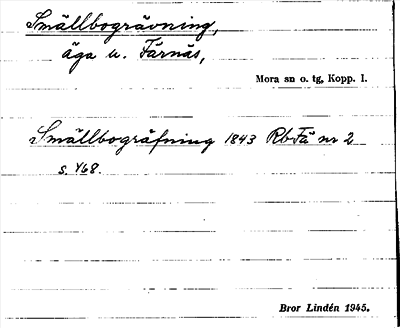 Smällbogrävning,
äga u. Färnäs,
Mora sn o. tg, Kopp. l.
Smällbogräfning 1843 RbFä nr 2
s. 468.
Bror Lindén 1945.